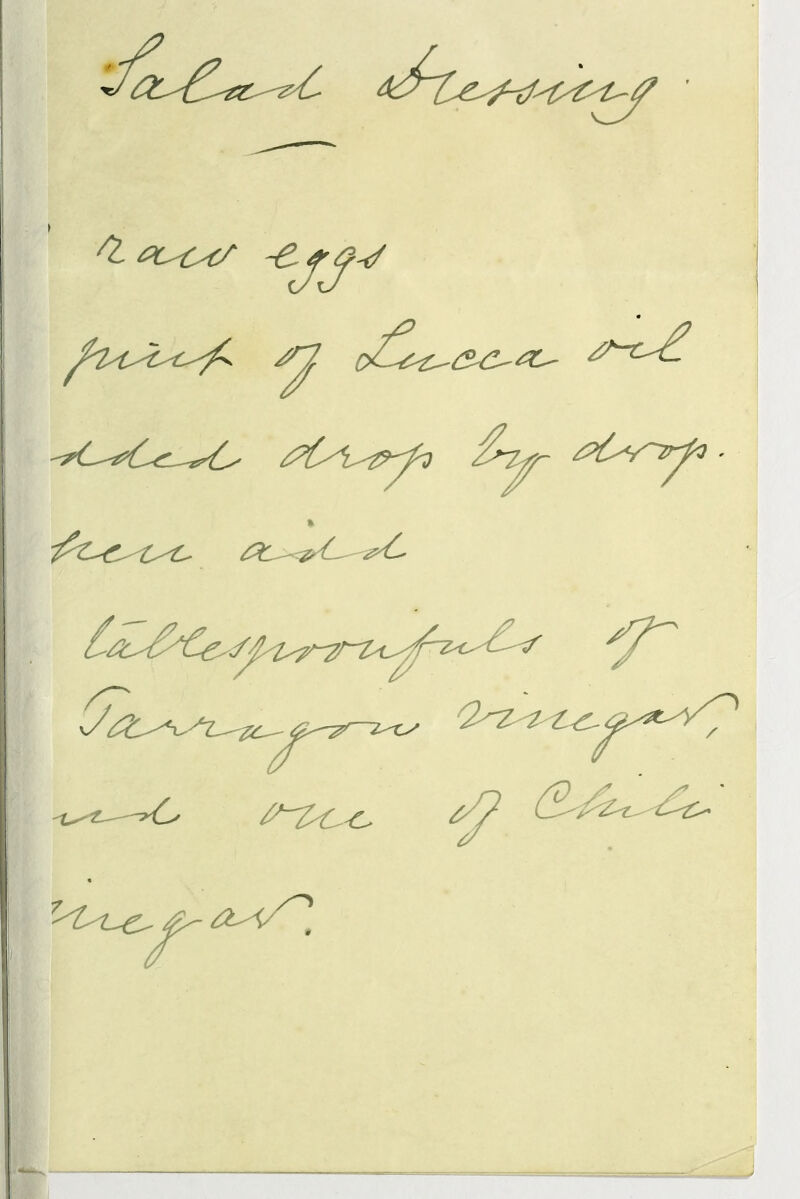 Salad Dressing.
raw eggs
pint of Lucca oil
dded drop by drop.
hen add
tablespoonfuls of
Tarragon vinegar,
nd one of Chili
inegar.